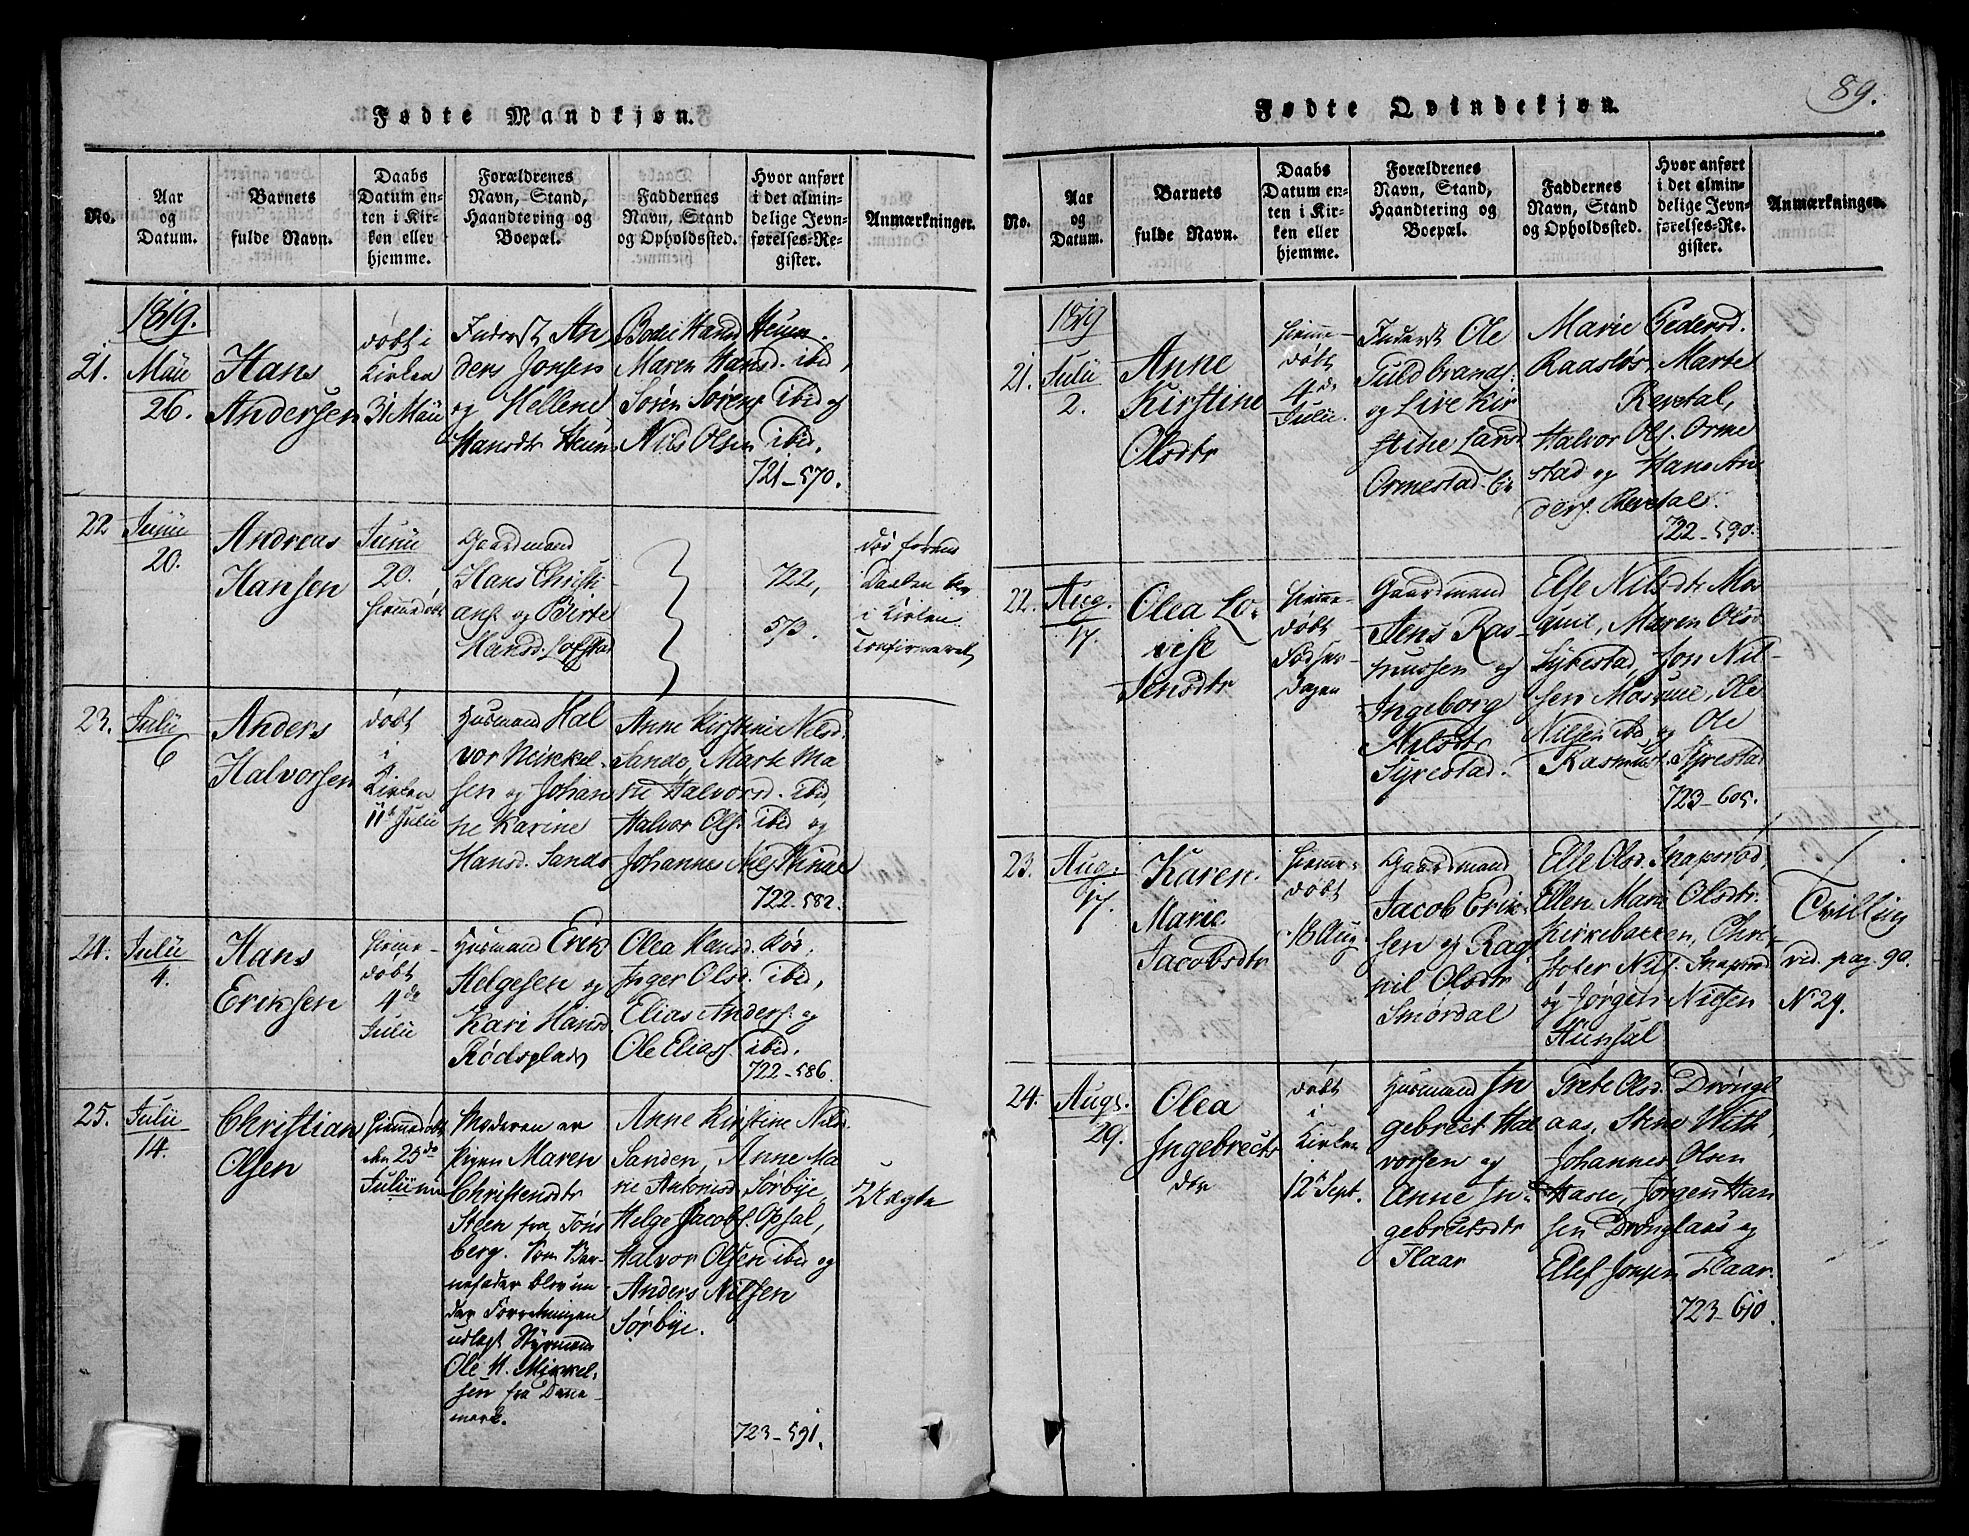 89.
Fødte Mandkjøn.
No.
Aar
og
Datum.
Barnets
fulde Navn.
Daabs
Datum en-
ten i Kir-
ken eller
hjemme.
Forældrenes
Navn, Stand,
Haandtering og
Boepæl.
Faddernes
Navn, Stand
og Opholdssted.
Hvor anført
i det almin-
delige Jevn-
førelses-Re-
gister.
Anmærkninger.
1819.
21.
Mäii
26.
Hans
Andersen
døbt i
Kirken
31 Mäii
Inderst An
ders Jonsen
og Hellene
Hansdtr Heum
Bodil Hansd Heum.
Maren Hansd. ibid,
Søren Sørens ibid og
Nils Olsen ibid.
721-570.
22
Junii
20.
Andreas
Hansen
Junii
20.
hjemmedøbt
Gaardmand
Hans Christi-
ans. og Birte
Hansd. Lofstad
722,
573.
døe førend
Daaben blev
i Kirken
Confirmeret
23.
Julii
6
Anders
Halvorsen
døbt
i
Kirken
11te Julii
Husmand Hal
vor Mickel-
sen og Johan
ne Karine
Hansd. Sande
Anne Kirstine Nilsd.
Sande, Marte Ma
rie Halvorsd. ibid,
Halvor Ols. ibid og
Johannes Niels
722-582.
24.
Julii
4.
Hans
Eriksen
hjemme-
døbt
4de
Julii
Husmand Erik
Helgesen og
Kari Hansd.
Rødsplads
Olea Hansd. Rød,
Inger Olsd. ibid,
Elias Anders. og
Ole Elias. ibid.
722-586.
25.
Julii
14.
Christian
Olsen
hjemmedøbt
den 25de
Julii
Moderen er
Pigen Maren
Christensdtr
Steen fra Tøns
berg. Som Bar-
nefader blev un
der Forretningen
udlagt Styrmand
Ole H. Mikkel-
sen fra Dane-
mark.
Anne Kirstine Nilsd.
Sanden, Anne Ma
rie Antonisd. Sørbye,
Helge Jacobs. Opsal,
Halvor Olsen ibid og
Anders Nilsen
Sørbye.
723-591.
Uægte
Fødte Qvindekjøn.
No.
Aar
og
Datum.
Barnets
fulde Navn.
Daabs
Datum en-
ten i Kir-
ken eller
hjemme.
Forældrenes
Navn, Stand,
Haandtering og
Boepæl.
Faddernes
Navn, Stand
og Opholdssted.
Hvor anført
i det almin-
delige Jevn-
førelses-Re-
gister.
Anmærkninger.
1819
21.
Julii
2.
Anne
Kirstine
Olsdtr
hjemme-
døbt
4de
Julii.
Inderst Ole
Guldbrands.
og Live Kir
stine Larsd
Ormestad
Marie Pedersd.
Raasløs, Marte
Revetal,
Halvor Ols. Orme
stad og Hans An
ders. Revetal.
722-590.
22.
Aug.
17.
Olea Lo-
vise
Jensdtr
hjemme-
døbt
Fødsels-
dagen
Gaardmand
Jens Ras-
mussen og
Ingeborg
Nilsdtr
Syrestad.
Else Nilsdtr Mos
quil, Maren Olsd
Syrestad, Jon Nil-
sen Mosquil, Ole
Nilsen ibid og Ole
Rasmus. Syrestad
723-605.
23.
Aug.
17.
Karen
Marie
Jacobsdtr
hjemme-
døbt
18 Aug
Gaardmand
Jacob Erik-
sen og Rag
nil Olsdtr
Smørdal
Else Olsd. Snapsrød,
Ellen Marie Olsdtr.
Kirkebakken, Chri-
stofer Nils. Snapsrød
og Jørgen Nilsen
Hunsal
Tvilling
vid. pag 90.
N 29.
24.
Augs.
29.
Olea
Ingebrects
dtr
døbt
i
Kirken
12te Sept.
Husmand In
gebrect Hal
vorsen og
Anne In-
gebrectsdtr
Flaar
Grete Olsd. Drøngl
aas, Stine With,
Johannes Olsen
Hasle, Jørgen Han
sen Drønglaas og
Ellef Jonsen Flaar.
723-610.